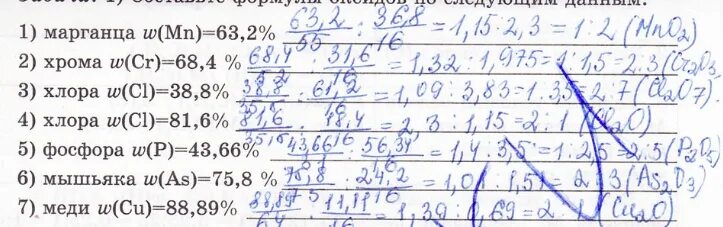 составьте формулы оксидов по следующим данным:
1) марганца w(Mn)=63,2% 63,2/55 : 36,8/16 = 1,15 : 2,3 = 1 : 2 (MnO₂)
2) хрома w(Cr)=68,4 % 68,4/52 : 31,6/16 = 1,32 : 1,975 = 1 : 1,5 = 2 : 3 (Cr₂O₃
3) хлора w(Cl)=38,8% 38,8/35,5 : 61,2/16 = 1,09 : 3,83 = 1 : 3,5 = 2 : 7 (Cl₂O₇).
4) хлора w(Cl)=81,6% 81,6/35,5 : 18,4/16 = 2,3 : 1,15 = 2 : 1 (Cl₂O)
5) фосфора w(P)=43,66% 43,66/31 : 56,34/16 = 1,4 : 3,5 = 1 : 2,5 = 2 : 5 (P₂O₅
6) мышьяка w(As)=75,8 % 75,8/75 : 24,2/16 = 1,01 : 1,51 = 2 : 3 (As₂O₃
7) меди w(Cu)=88,89% 88,89/64 : 11,11/16 = 1,39 : 0,69 = 2 : 1 (Cu₂O)